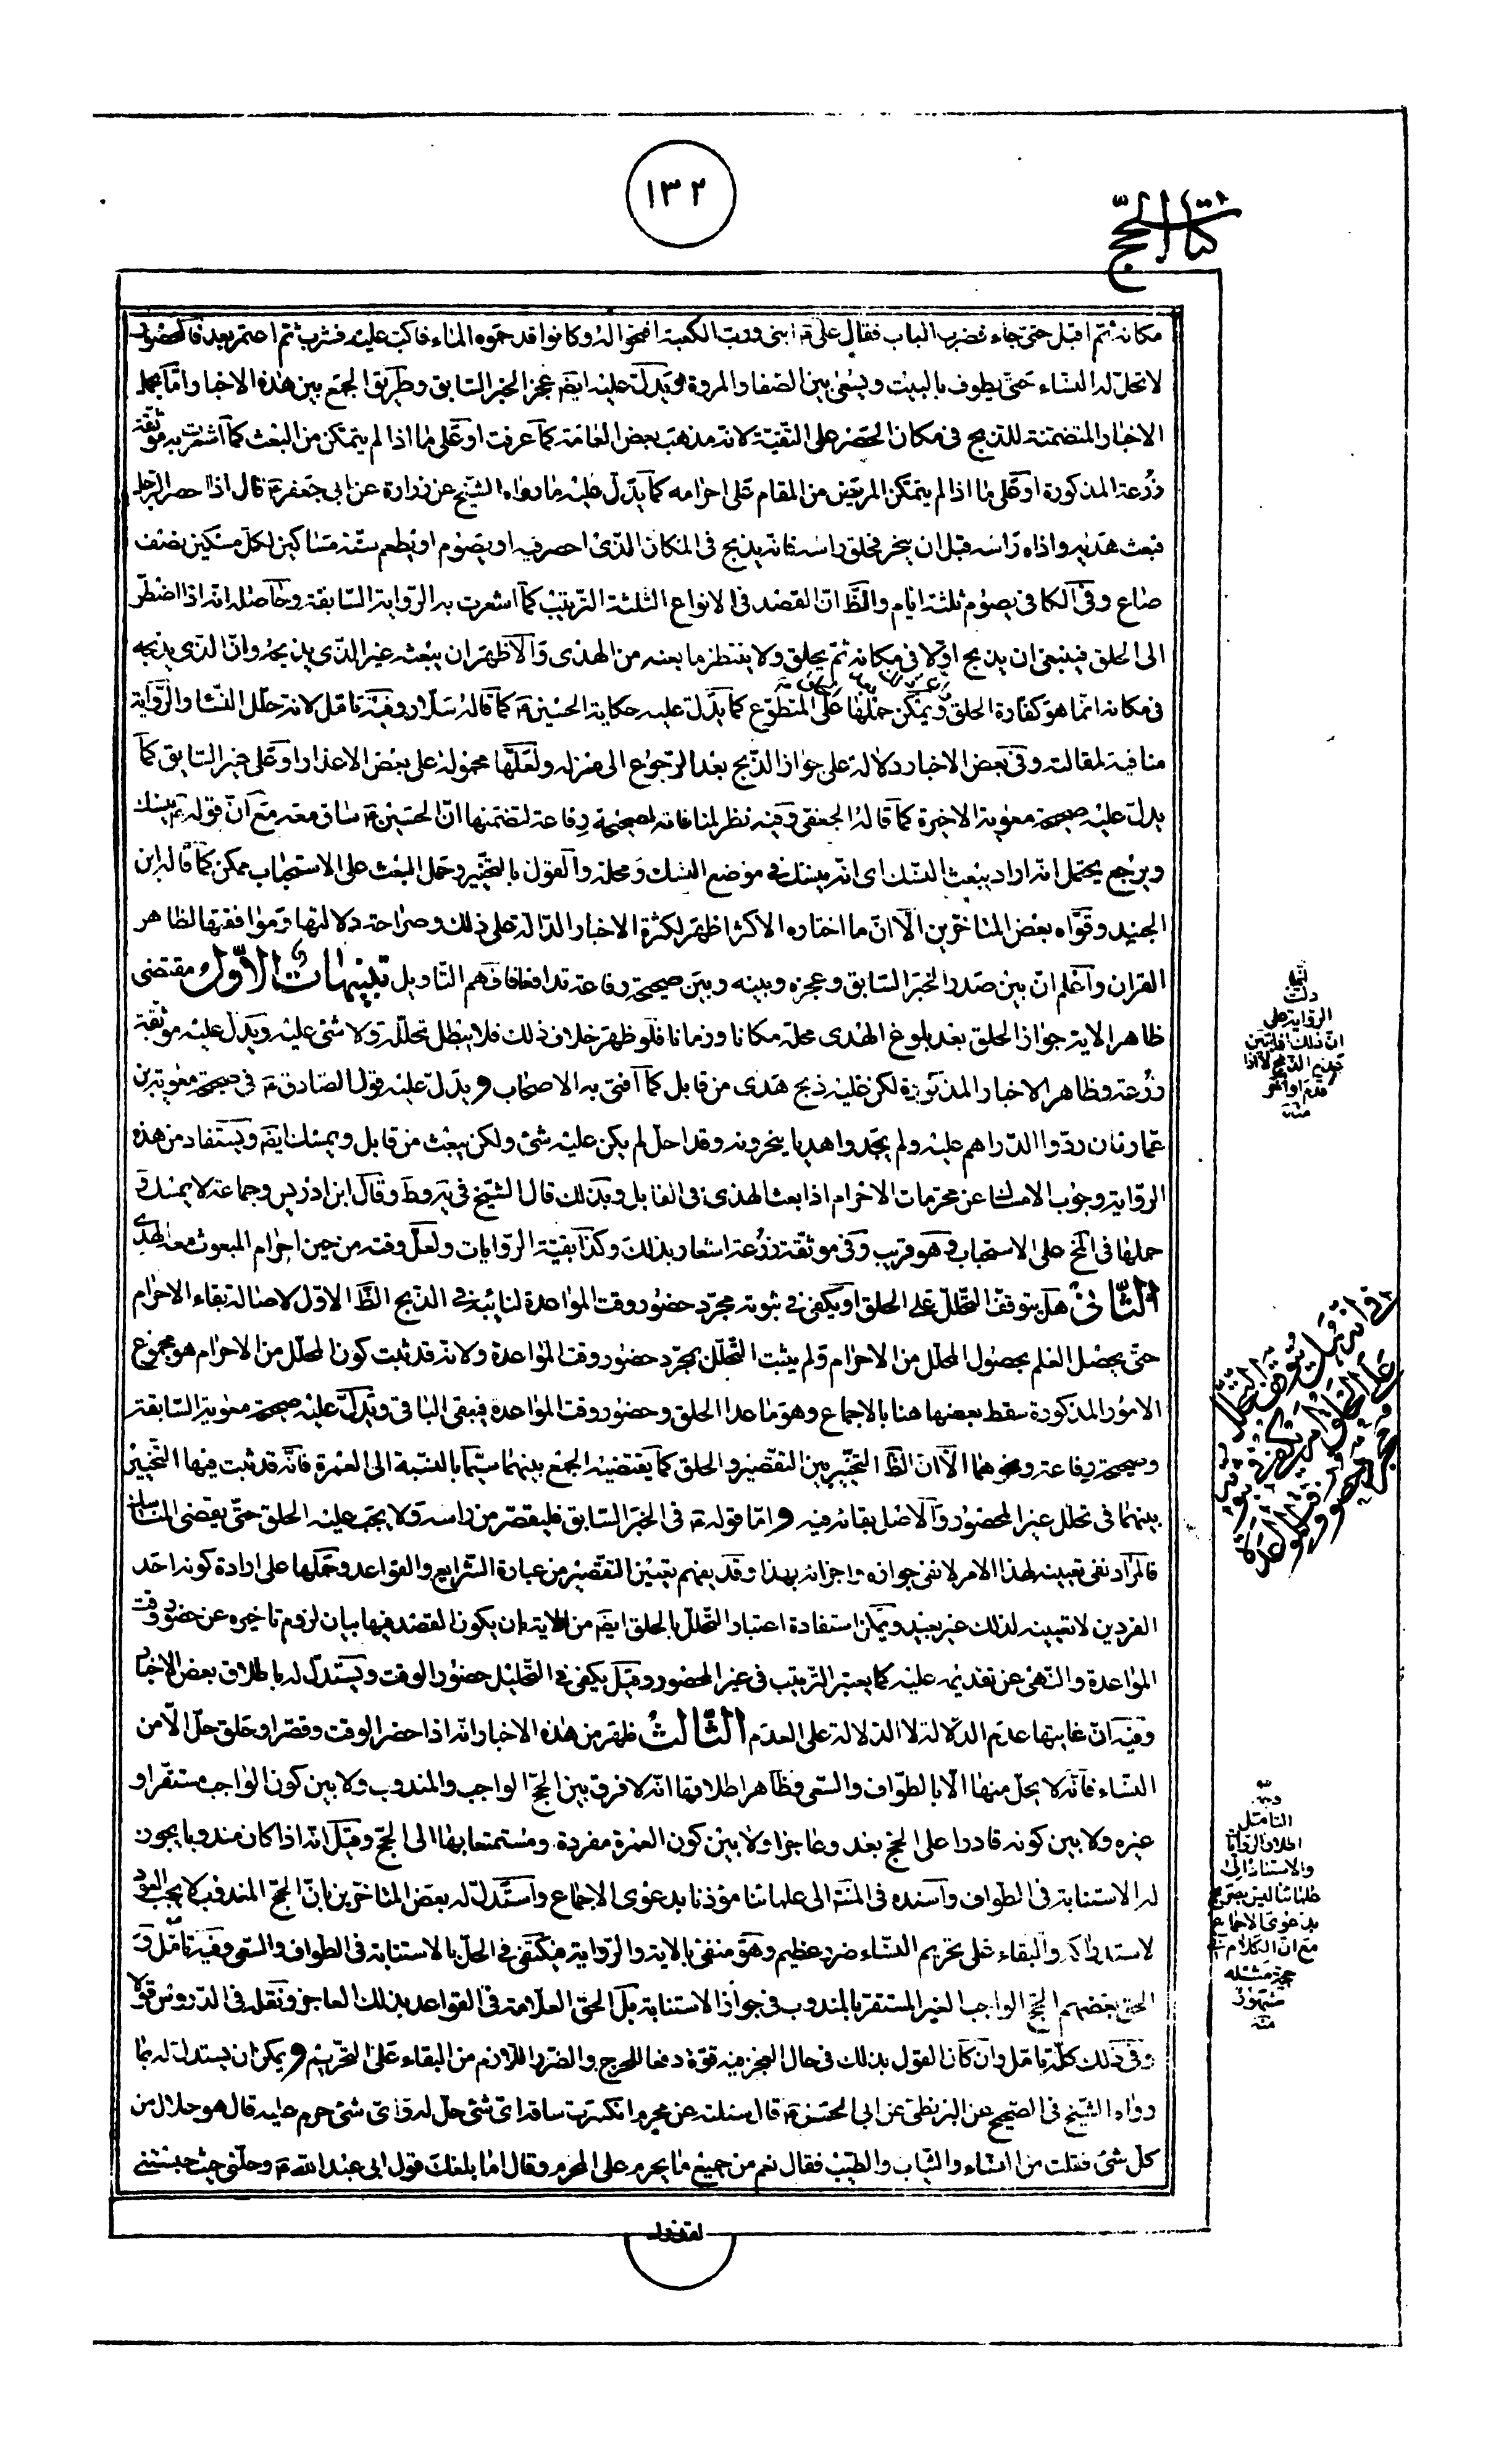 ١٣٢
كتاب الحج
مكانه ثم اقبل حتى جاء فضرب الباب فقال علي ع ابني ورب الكعبة افتحوا له وكانوا قد حموه الماء فاكب عليه فشرب ثم اعتمر بعد فالمحصور
لا تحل له النساء حتى يطوف بالبيت ويسعى بين الصفا والمروة ويدل عليه ايضا عجز الخبر السابق وطريق الجمع بين هذه الاخبار اما بحمل
الاخبار المتضمنة للذبح في مكان الحصر على التقية لانه مذهب بعض العامة كما عرفت او على ما اذا لم يتمكن من البعث كما اشعرت به موثقة
زرعة المذكورة او على ما اذا لم يتمكن المريض من المقام على احرامه كما يدل عليه ما رواه الشيخ عن زرارة عن ابي جعفر ع قال اذا احصر الرجل
فبعث هديه واذاه راسه قبل ان ينحر فحلق راسه فانه يذبح في المكان الذي احصر فيه او يصوم او يطعم ستة مساكين لكل مسكين نصف
صاع وفي الكافي يصوم ثلثة ايام والظ ان القصد في الانواع الثلثة الترتيب كما اشعرت به الرواية السابقة وحاصله انه اذا اضطر
الى الحلق فينبغي ان يذبح اولا في مكانه ثم يحلق ولا ينتظر ما بعثه من الهدى والاظهر ان يبعثه غير الذي يذبحه وان الذي يذبحه
في مكانه انما هو كفارة الحلق ويمكن حملها على المتطوع كما يدل عليه حكاية الحسين ع كما قاله سلار وفيه تامل لانه حلل النسا والرواية
منافية لمقالته وفي بعض الاخبار دلالة على جواز الذبح بعد الرجوع الى منزله ولعلها محمولة على بعض الاعذار او على غير السابق كما
يدل عليه صحيحة معوية الاخيرة كما قاله الجعفي وفيه نظر لمنافاته لصحيحة رفاعة لتضمنها ان الحسين ع ساق معه مع ان قوله ع ينسك
ويرجع يحتمل انه اراد يبعث النسك اى انه ينسك في موضع النسك ومحله والقول بالتخيير وحمل البعث على الاستحباب ممكن كما قاله ابن
الجنيد وقواه بعض المتاخرين الا ان ما اختاره الاكثر اظهر لكثرة الاخبار الدالة على ذلك وصراحة دلالتها وموافقتها لظاهر
القران واعلم ان بين صدر الخبر السابق وعجزه وبينه وبين صحيحة رفاعة تدافعا فافهم التاويل تنبيهات الاول مقتضى
ظاهر الاية جواز الحلق بعد بلوغ الهدى محله مكانا وزمانا فلو ظهر خلاف ذلك فلا يبطل تحلله ولا شئ عليه ويدل عليه موثقة
زرعة وظاهر الاخبار المذكورة لكن عليه ذبح هدى من قابل كما افتى به الاصحاب ويدل عليه قول الصادق ع في صحيحة معوية بن
عمار فان ردوا الدراهم عليه ولم يجدوا هديا ينحرونه وقد احل لم يكن عليه شئ ولكن يبعث من قابل ويمسك ايضا ويستفاد من هذه
الرواية وجوب الامساك عن محرمات الاحرام اذا بعث الهدى في القابل وبذلك قال الشيخ في يه وط وقال ابن ادريس وجماعة لا يمسك و
حملها في لخ على الاستحباب وهو قريب وفي موثقة زرعة اشعار بذلك وكذا بقية الروايات ولعل وقته من حين احرام المبعوث معه الهدى
الثاني هل يتوقف التحلل على الحلق او يكفي في ثبوته مجرد حضور وقت المواعدة لنائبه في الذبح الظ الاول لاصالة بقاء الاحرام
حتى يحصل العلم بحصول المحلل من الاحرام ولم يثبت التحلل بمجرد حضور وقت المواعدة ولانه قد ثبت كون المحلل من الاحرام هو مجموع
الامور المذكورة سقط بعضها هنا بالاجماع وهو ما عدا الحلق وحضور وقت المواعدة فيبقى الباقي ويدل عليه صحيحة معوية السابقة
وصحيحة رفاعة ونحوهما الا ان الظ التخيير بين التقصير والحلق كما يقتضيه الجمع بينهما سيما بالنسبة الى العمرة فانه قد ثبت فيها التخيير
بينهما في تحلل غير المحصور والاصل بقائه فيه واما قوله ع في الخبر السابق فليقصر من راسه ولا يجب عليه الحلق حتى يقضى المناسك
فالمراد نفي تعيينه لهذا الامر لا نفي جوازه واجزائه بهذا وقد يفهم تعيين التقصير من عبارة الشرايع والقواعد وحملها على ارادة كونه احد
الفردين لا تعيينه لذلك غير بعيد ويمكن استفادة اعتبار التحلل بالحلق ايضا من الاية بان يكون القصد فيها بيان لزوم تاخيره عن حضور وقت
المواعدة والنهى عن تقديمه عليه كما يعتبر الترتيب في غير المحضور وقيل يكفي في التحليل حضور الوقت ويستدل له باطلاق بعض الاخبار
وفيه ان غايتها عدم الدلالة لا الدلالة على العدم الثالث ظهر من هذه الاخبار انه اذا حضر الوقت وقصر او حلق حل الا من
النساء فانه لا يحل منها الا بالطواف والسعى وظاهر اطلاقها انه لا فرق بين الحج الواجب والمندوب ولا بين كون الواجب مستقرا و
غيره ولا بين كونه قادرا على الحج بعد وعاجزا ولا بين كون العمرة مفردة ومستمتعا بها الى الحج وقيل انه اذا كان مندوبا يجوز
له الاستنابة في الطواف واسنده في المنتهى الى علمائنا مؤذنا بدعوى الاجماع واستدل له بعض المتاخرين بان الحج المندوب لا يجب العود
لاستدراكه والبقاء على تحريم النساء ضرر عظيم وهو منفي بالاية والرواية فيكتفى في الحل بالاستنابة في الطواف والسعى وفيه تامل و
الحق بعضهم الحج الواجب الغير المستقر بالمندوب في جواز الاستنابة بل الحق العلامة في القواعد بذلك العاجز ونقله في الدروس قولا
وفي ذلك كله تامل وان كان القول بذلك في حال العجز فيه قوة دفعا للحرج والضرر اللازم من البقاء على التحريم ويمكن ان يستدل له بما
رواه الشيخ في الصحيح عن البزنطي عن ابي الحسن ع قال سئلته عن محرم انكسرت ساقه اى شئ حل له واى شئ حرم عليه قال هو حلال من
كل شئ فقلت من النساء والثياب والطيب فقال نعم من جميع ما يحرم على المحرم وقال اما بلغك قول ابي عبد الله ع وحلني حيث حبستني
لقدرك
انما
دلت
الرواية على
ان ذلك اذا تعين
تقديم الذبح لا اذا
قدم او اخر
منه
في انه هل يتوقف التحلل
على الحلق ام يكفي في ثبوته
مجرد حضور وقت المواعدة
وجه
التامل
اطلاق الروايات
والاستناد الى
علمائنا ليس بصريح
بدعوى الاجماع
مع ان الكلام في
حجية مثله
مشهور
منه